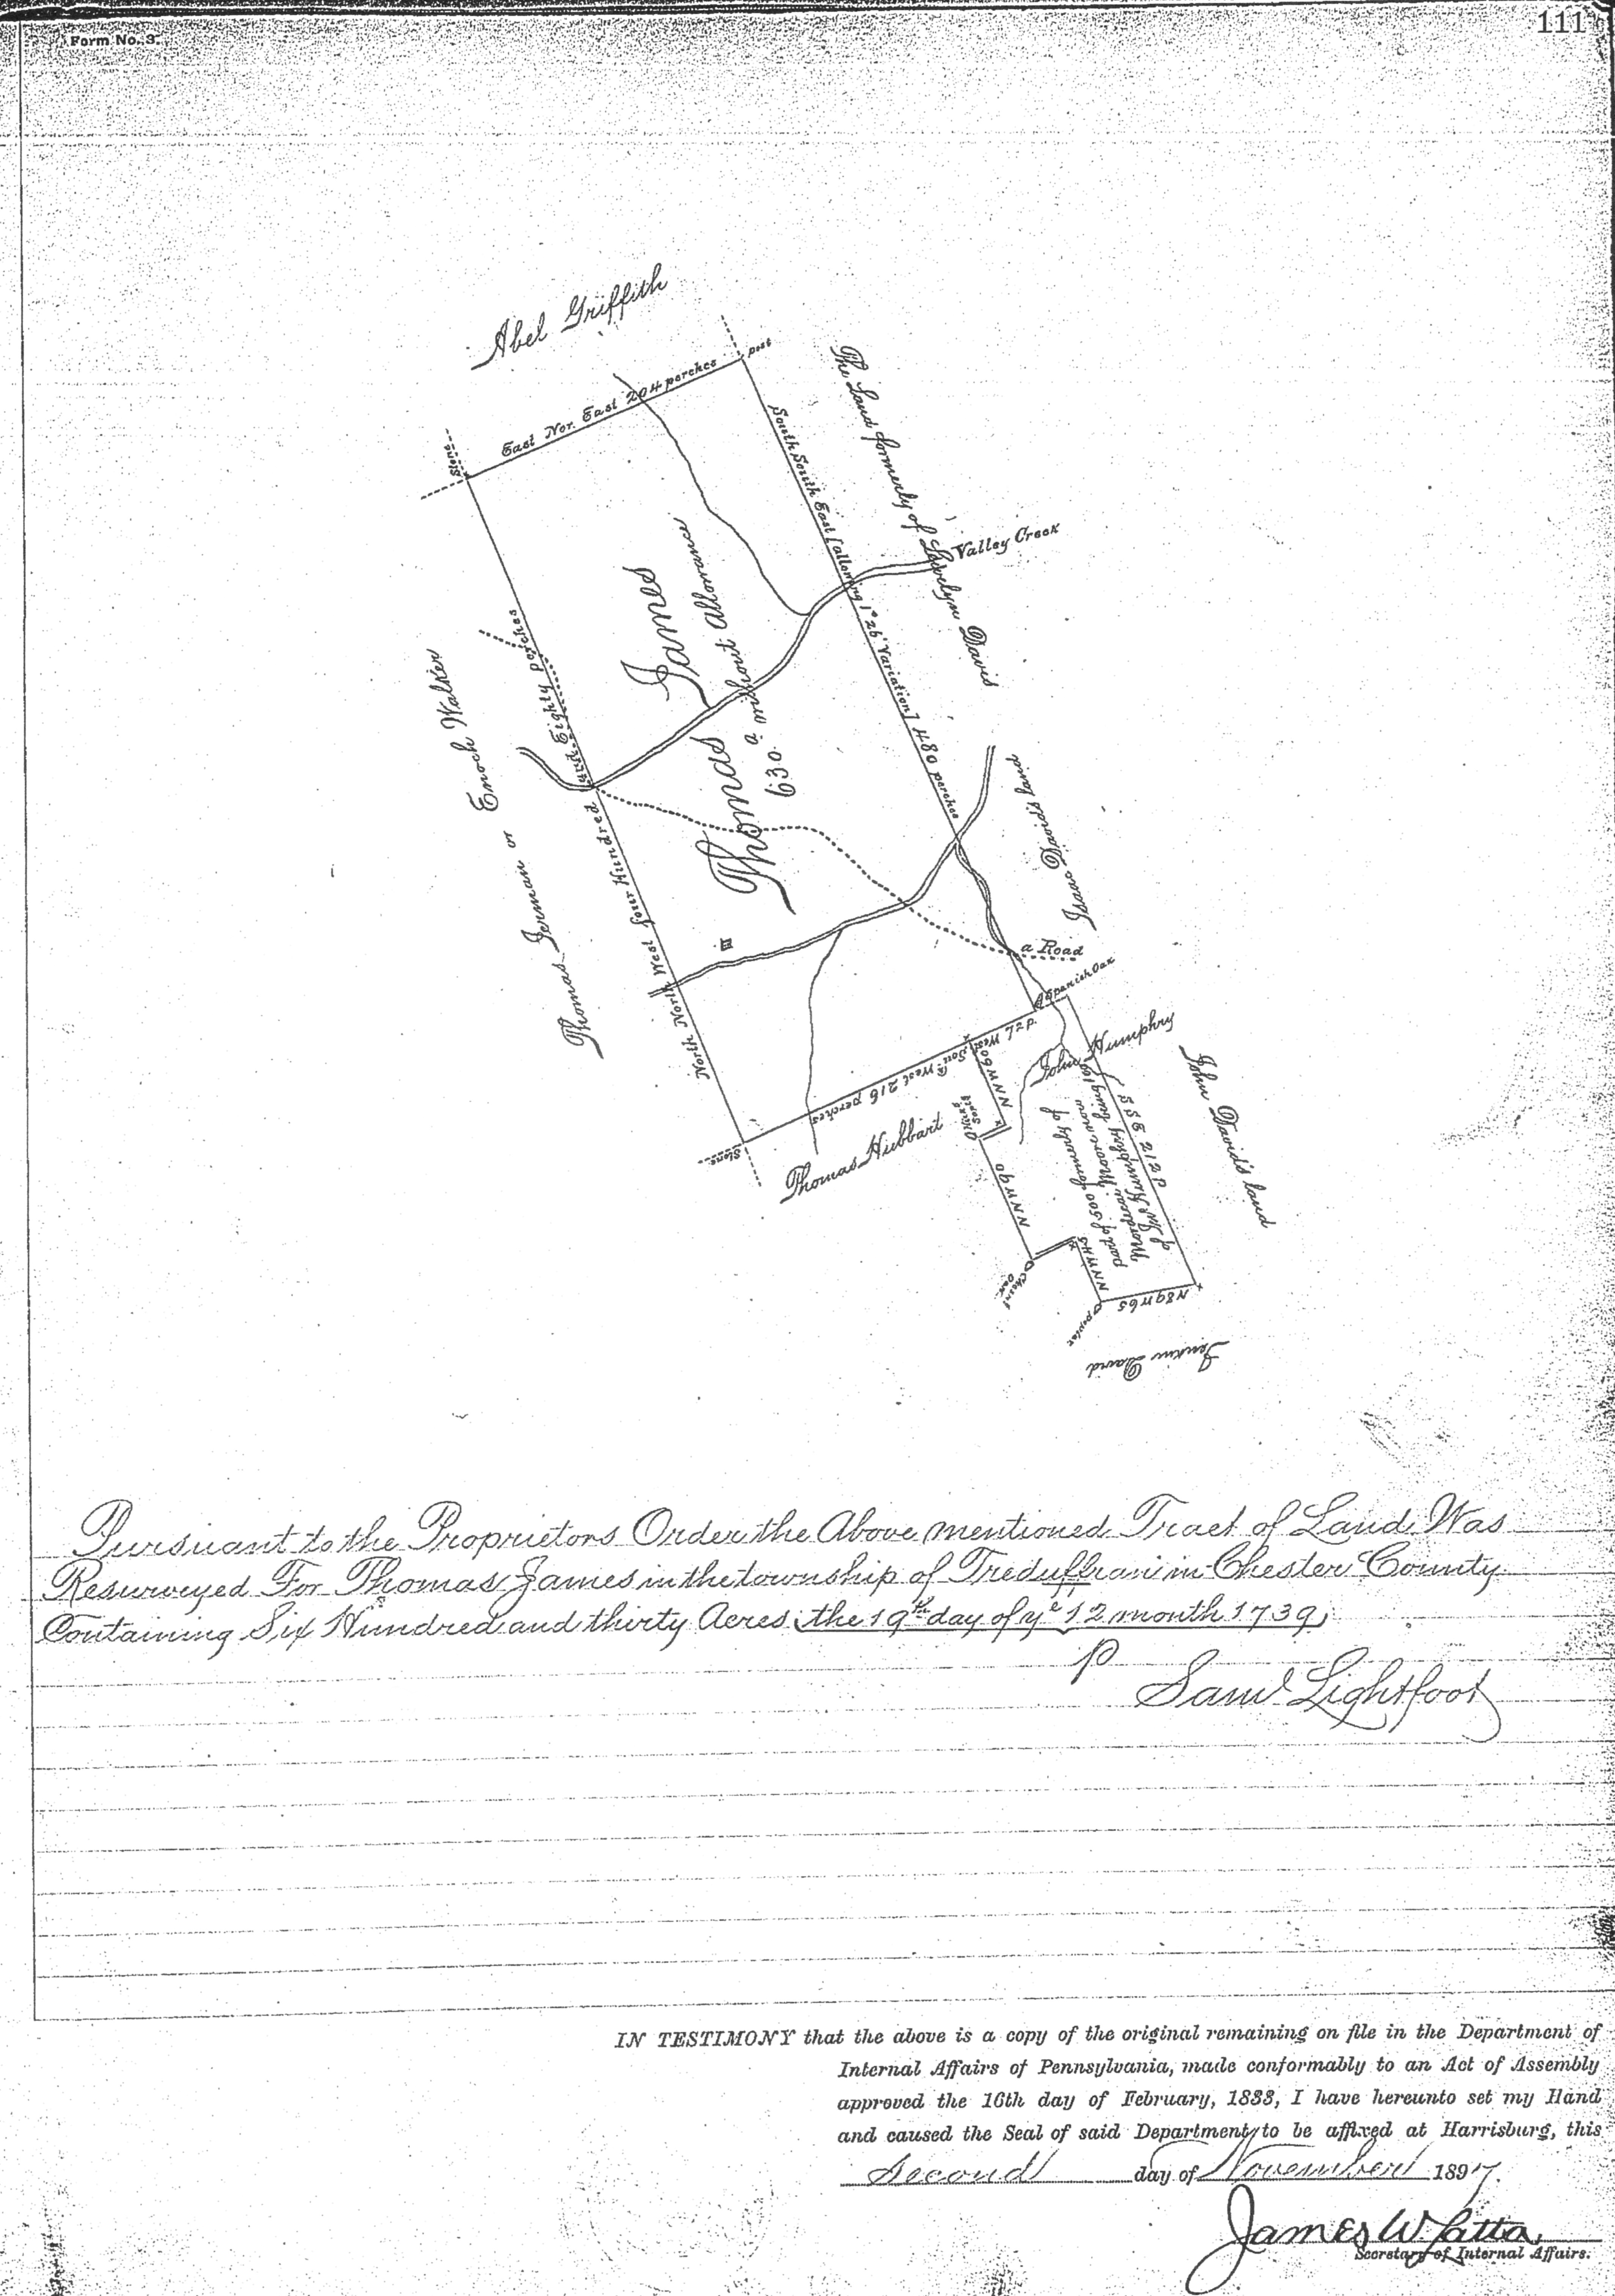 111
Form No. 3.
Abel Griffith
post
East Nor. East 204 perches
Stone
The Land formerly of Lewelyn Davis
South South East [allowing 1° 26' Variation] 480 perches
Valley Creek
James
Thomas
630 a without Allowance
Enoch Walker
or
Thomas Jerman
North North West four Hundred and Eighty perches
Isaac David's land
a Road
a Spanish Oak
West 72 p.
Sou West 216 perches
Stone
NNW 60
John Humphry
Thomas Hubbart
NNW 90
SSE 212 P
John David's land
part of 500 formerly of
NNW 45
Chesnt Oak
poplar
N89W65
Jenkin David
Pursuant to the Proprietors Order the Above mentioned Tract of Land Was
Resurveyed For Thomas James in the township of Treduffran in Chester County
Containing Six Hundred and thirty Acres the 19th day of ye 12 month 1739
p
Saml Lightfoot
IN TESTIMONY that the above is a copy of the original remaining on file in the Department of
Internal Affairs of Pennsylvania, made conformably to an Act of Assembly
approved the 16th day of February, 1833, I have hereunto set my Hand
and caused the Seal of said Department to be affixed at Harrisburg, this
Second day of November 1897.
James W. Latta
Secretary of Internal Affairs.